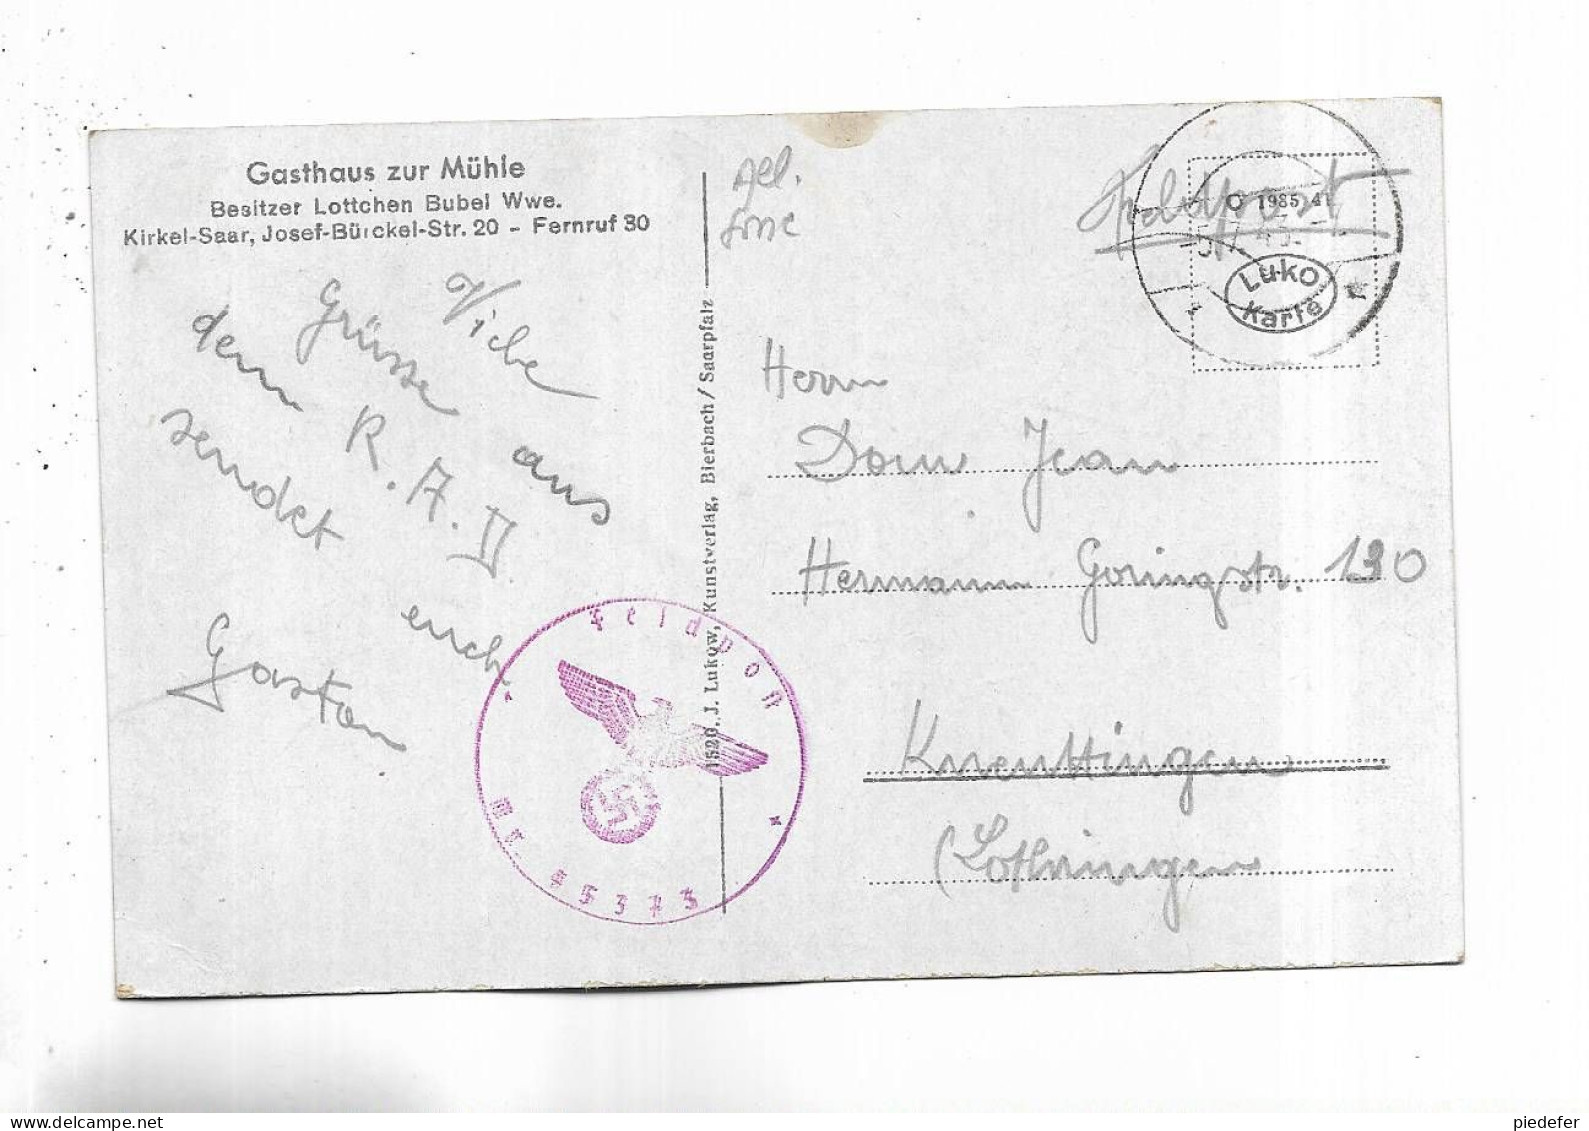 Gasthaus zur Mühle
Besitzer Lottchen Bubel Wwe.
Kirkel-Saar, Josef-Bürckel-Str. 20 - Fernruf 30
Viele
Grüsse aus
dem R.A.D
sendet euch
Gaston
1526. J. Lukow, Kunstverlag, Bierbach / Saarpfalz
Feldpost
1985 41
-5.7.43.
Luko
Karte
Herrn
Jean
Hermann Goringstr. 130
Knenttingen
(Lothringen
Feldpost
Nr 45373
piedefer